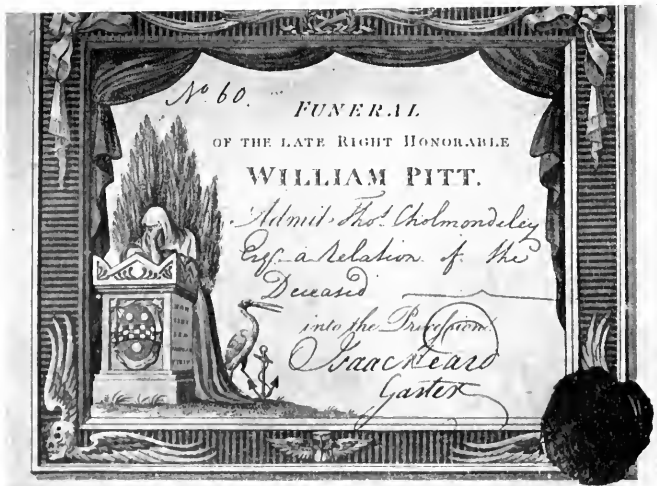 No. 60.
FUNERAL
OF THE LATE RIGHT HONORABLE
WILLIAM PITT.
Admit Thos. Cholmondeley
Esqr. a Relation of the
Deceased
into the Procession.
Isaac Heard
Garter